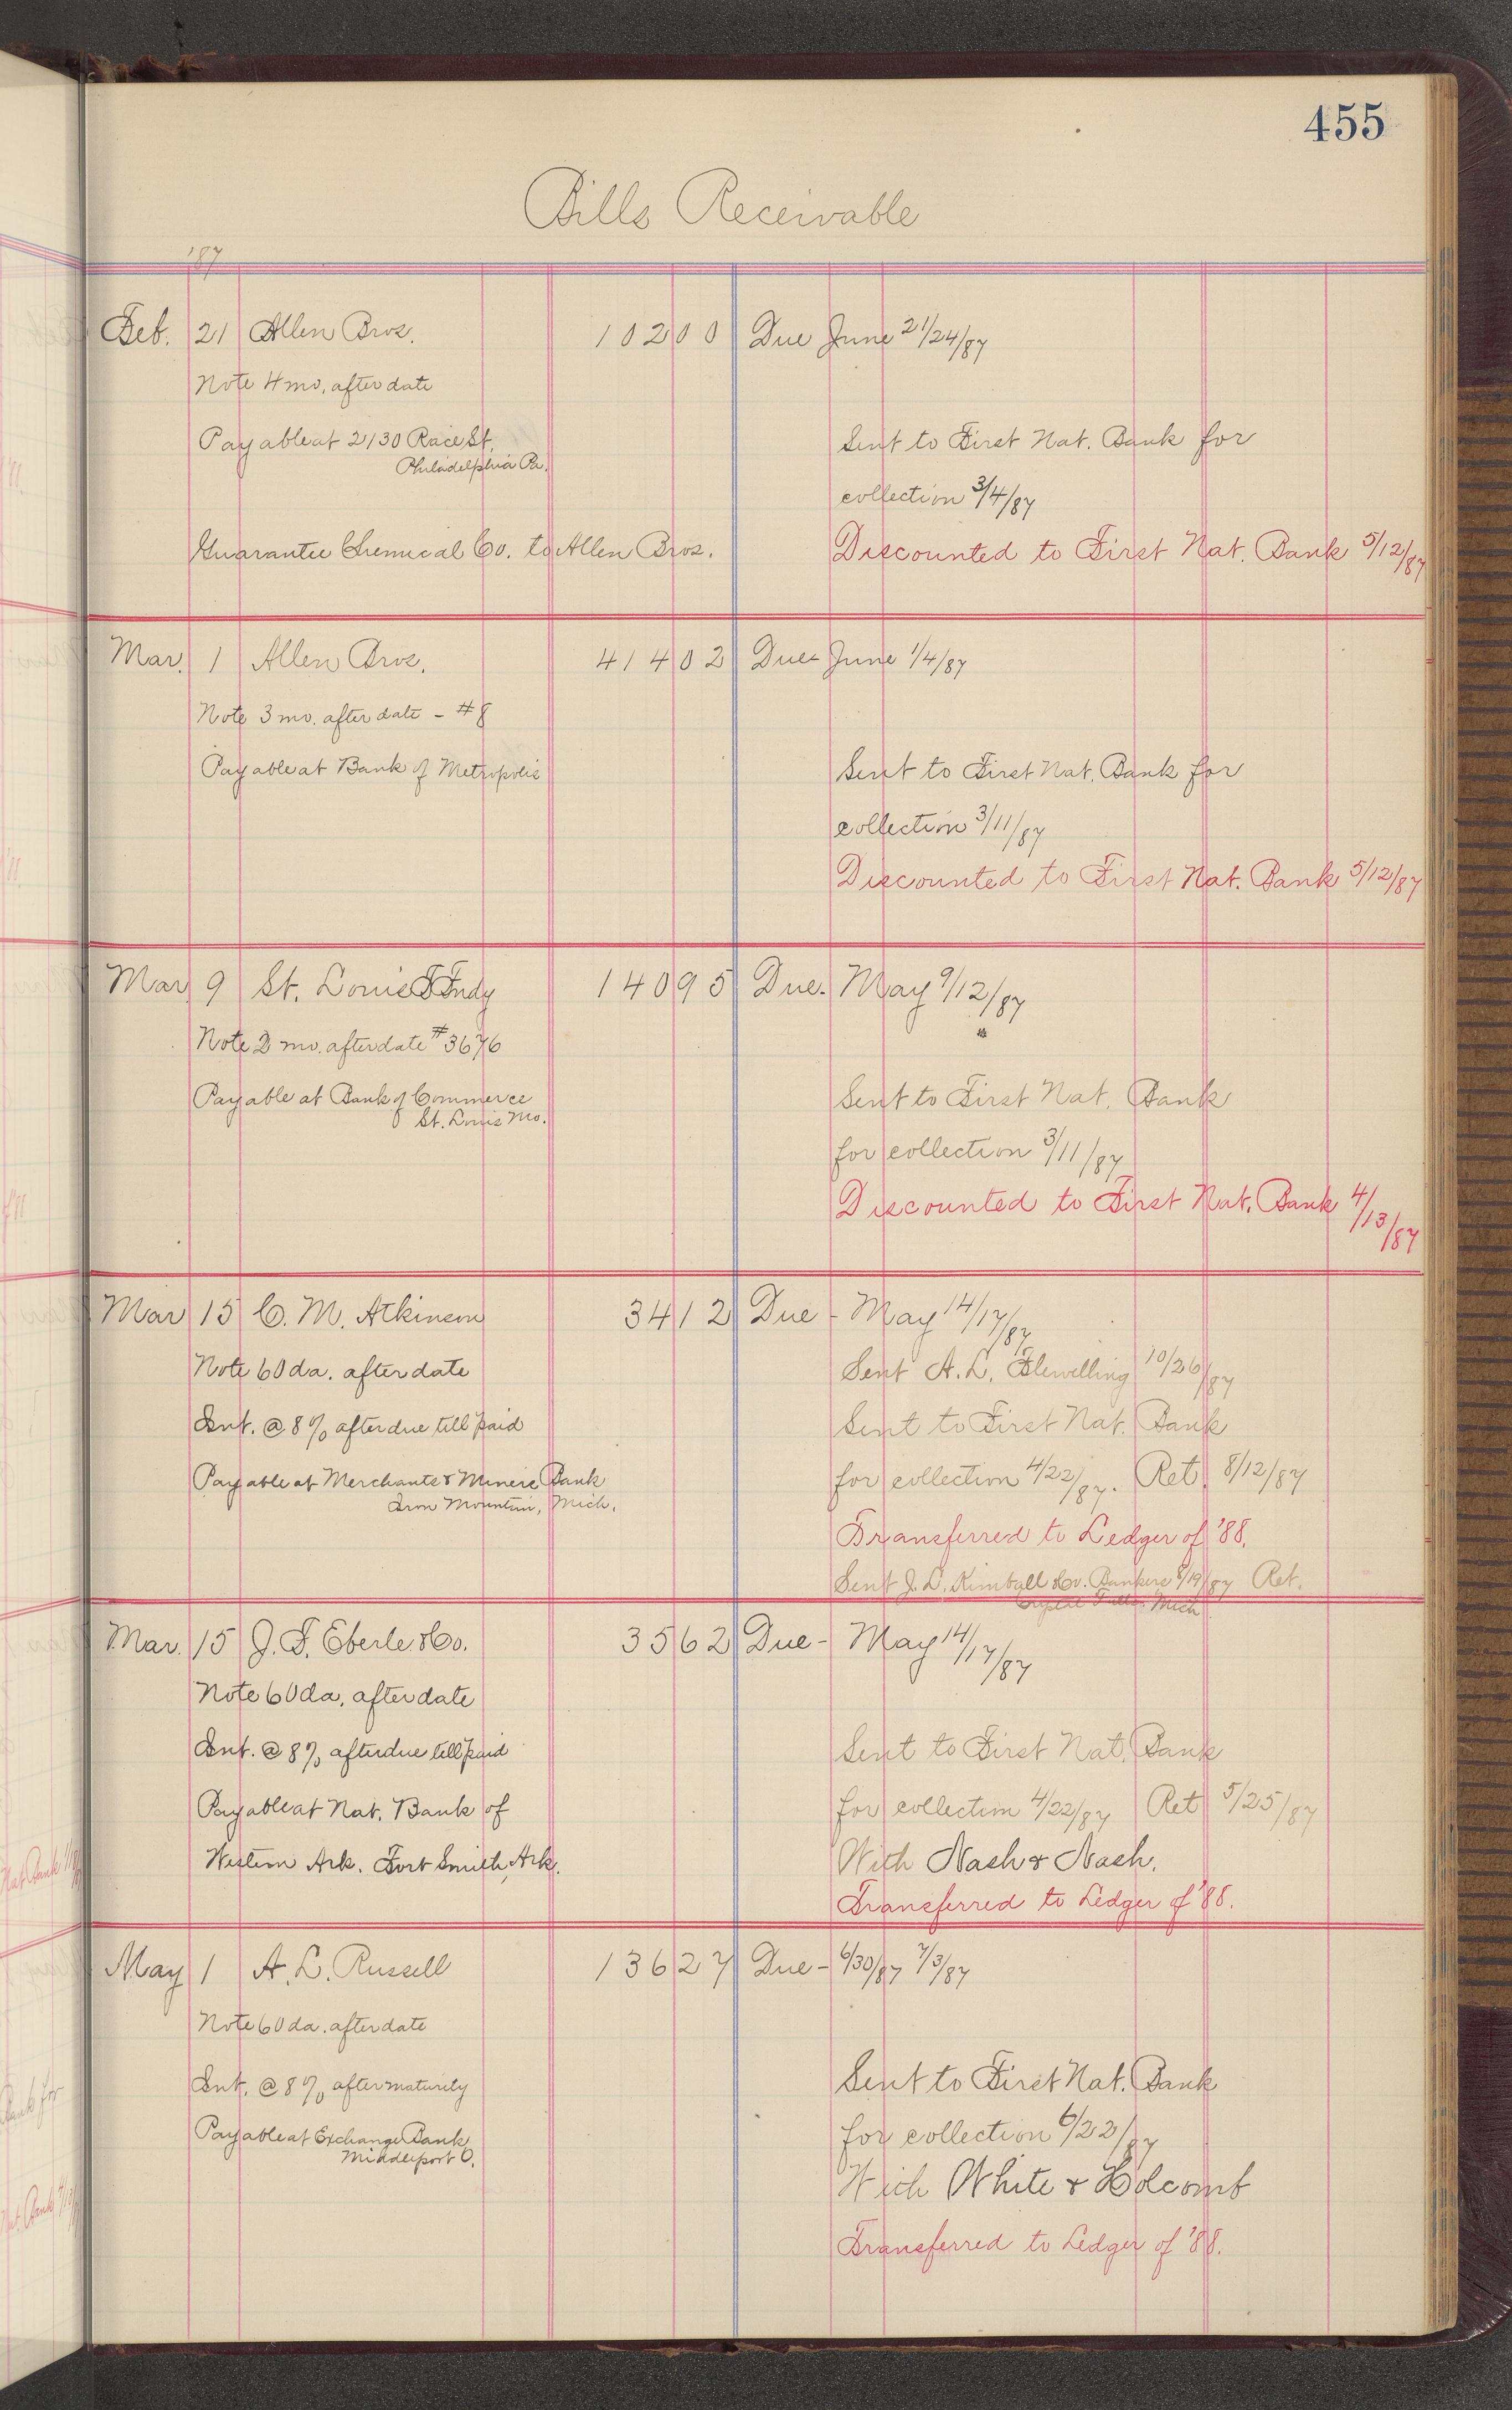 455
Bills Receivable
'87
Feb. 21 Allen Bros. 102 00 Due June 21/24/87
Note 4 mo. after date
Payable at 2130 Race St. Sent to First Nat. Bank for
Philadelphia Pa.
collection 3/4/87
Guarantee Chemical Co. to Allen Bros. Discounted to First Nat. Bank 5/12/87
Mar. 1 Allen Bros. 414 02 Due June 1/4/87
Note 3 mo. after date - #8
Payable at Bank of Metropolis Sent to First Nat. Bank for
collection 3/11/87
Discounted to First Nat. Bank 5/12/87
Mar 9 St. Louis 140 95 Due. May 9/12/87
Note 2 mo. after date #3676
Payable at Bank of Commerce Sent to First Nat. Bank
St. Louis Mo.
for collection 3/11/87
Discounted to First Nat. Bank 4/13/87
Mar 15 C. M. Atkinson 34 12 Due - May 14/17/87
Note 60 da. after date Sent A. L. Flewelling 10/26/87
Int. @ 8% after due till paid Sent to First Nat. Bank
Payable at Merchants & Miners Bank for collection 4/22/87. Ret. 8/12/87
Iron Mountain, Mich.
Transferred to Ledger of '88.
Sent J. L. Kimball & Co. Bankers 8/19/87 Ret.
Crystal Falls. Mich
Mar. 15 J. F. Eberle & Co. 35 62 Due - May 14/17/87
Note 60 da. after date
Int. @ 8% after due till paid Sent to First Nat. Bank
Payable at Nat. Bank of for collection 4/22/87 Ret 5/25/87
Western Ark. Fort Smith, Ark. With Nash & Nash.
Transferred to Ledger of '88.
May 1 A. L. Russell 136 27 Due - 6/30/87 7/3/87
Note 60 da. after date
Int. @ 8% after maturity Sent to First Nat. Bank
Payable at Exchange Bank for collection 6/22/87
Middleport O.
With White & Holcomb
Transferred to Ledger of '88.